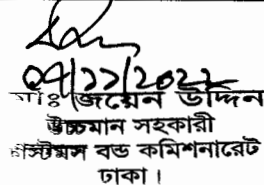 ০৭/১১/২০২২
মোঃ জয়েন উদ্দিন
উচ্চমান সহকারী
কাস্টমস বন্ড কমিশনারেট
ঢাকা।